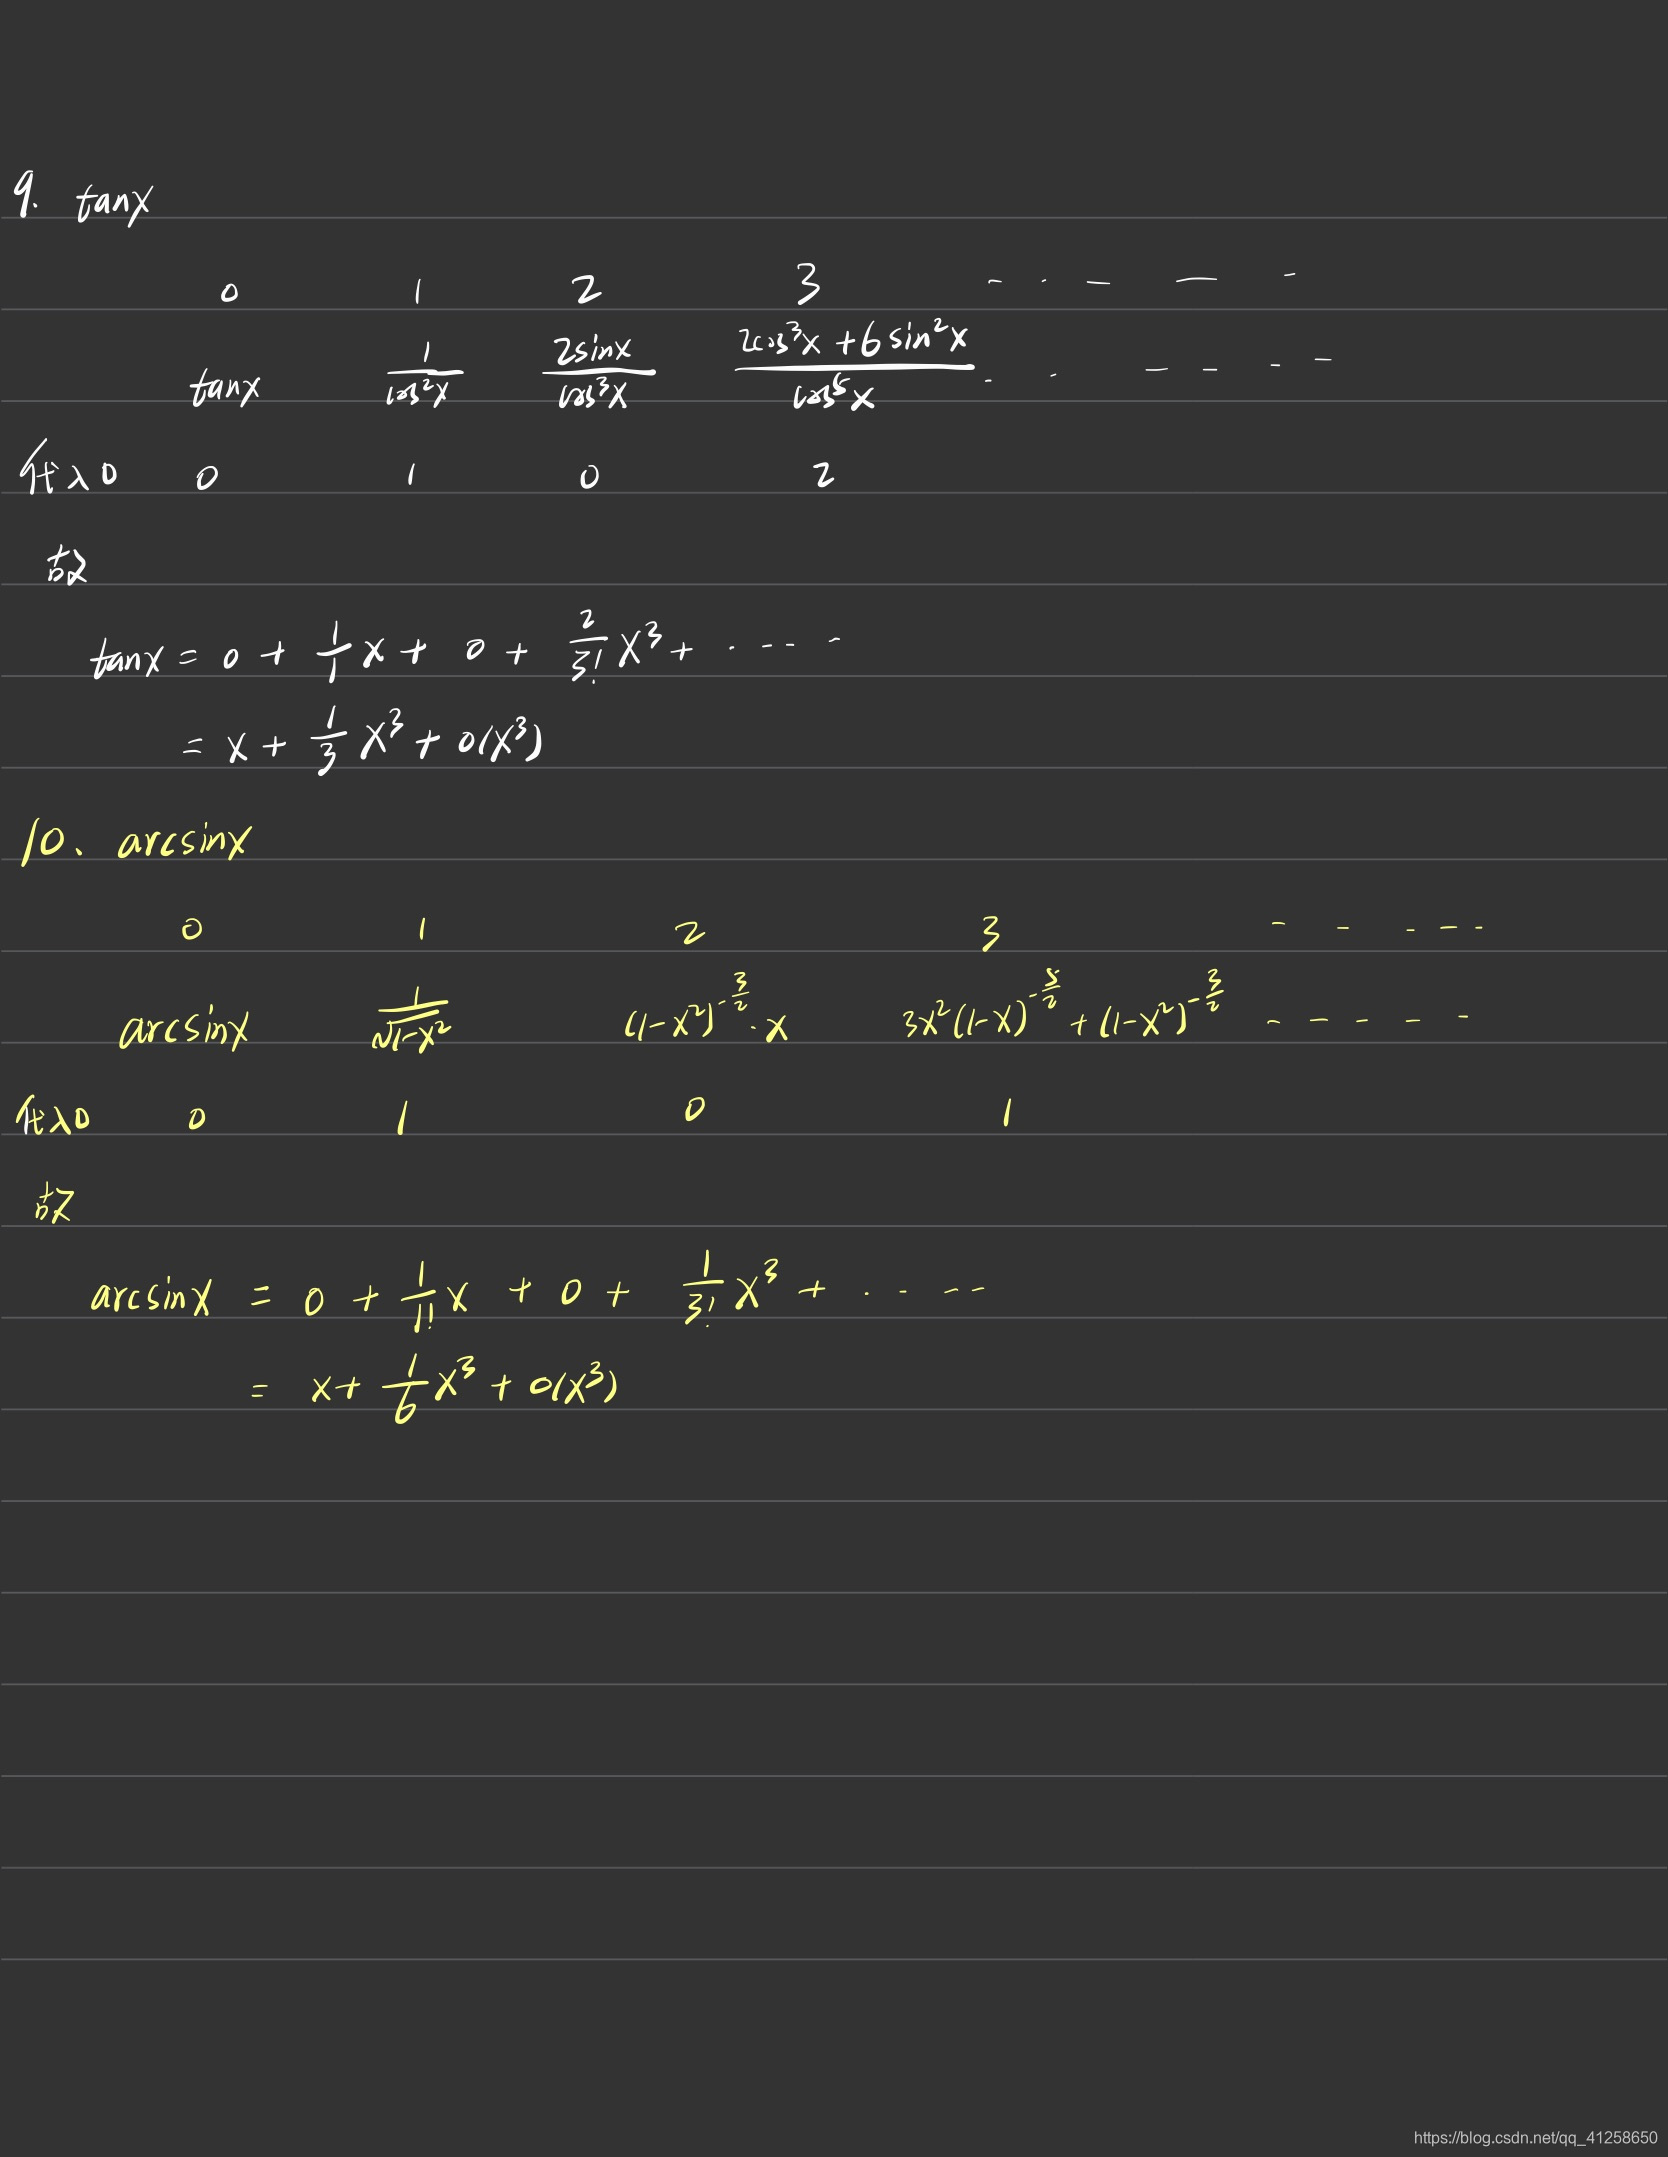 9. tanx
0 1 2 3 - · - — -
tanx 1/cos²x 2sinx/cos³x (2cos³x + 6sin²x)/cos⁵x · · — - - —
代入0 0 1 0 2
故
tanx = 0 + 1/1 x + 0 + 2/3! x³ + · - - · -
= x + 1/3 x³ + o(x³)
10、 arcsinx
0 1 2 3 - - - - -
arcsinx 1/√(1-x²) (1-x²)^(-3/2) · x 3x²(1-x)^(-5/2) + (1-x²)^(-3/2) - - - - -
代入0 0 1 0 1
故
arcsinx = 0 + 1/1! x + 0 + 1/3! x³ + · - - -
= x + 1/6 x³ + o(x³)
https://blog.csdn.net/qq_41258650